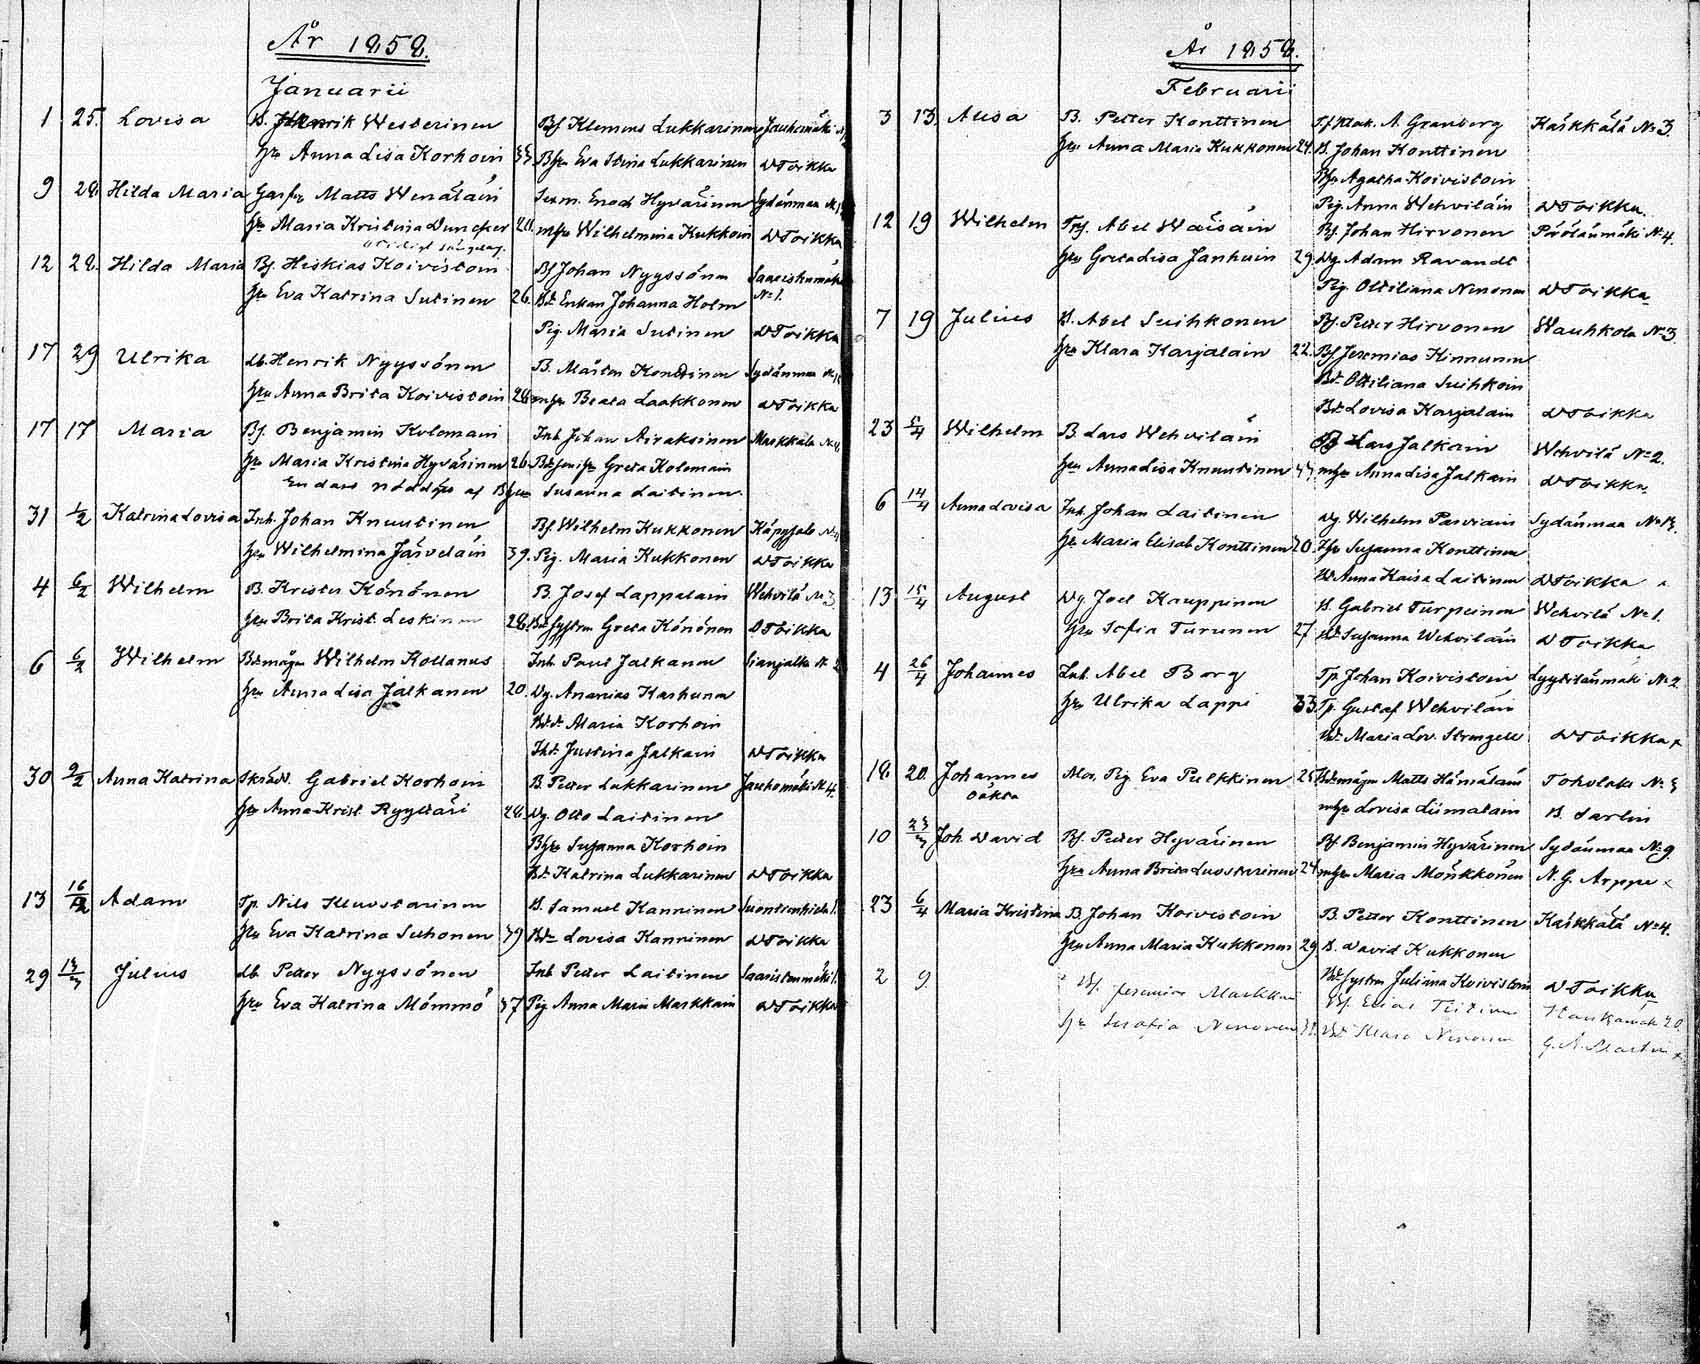 År 1858.
Januarii
1 25. Lovisa B. Henrik Westerinen Bf Klemens Lukkarinen Jauhomäki
hr Anna Lisa Korhoin 33 Bhr Eva Stina Lukkarinen DToikka
9 28 Hilda Maria Matts Wenäläin Sexm. Enoch Hyvärinen Sydänmaa
hr Maria Kristina Duncker 20. mhr Wilhelmina Kukkoin DToikka
12 28. Hilda Maria Bf. Heskias Koivistoin Bf Johan Nyyssönen
hr Eva Katrina Sutinen 26. Bd. Enkan Johanna Holm No 1.
Pig. Maria Sutinen DToikka
17 29 Ulrika db. Henrik Nyyssönen B. Mårten Konttinen Sydänmaa
hru Anna Brita Koivistoin 28 mhr Beata Laakkonen DToikka
17 17 Maria Bf. Benjamin Kolomain Inh Johan Airaksinen Markkala
hr Maria Kristina Hyvärinen 26. Greta Kolomain
Susanna Laitinen
31 1/2 Katrina Lovisa Inh. Johan Knuutinen Bf. Wilhelm Kukkonen
hru Wilhelmina Järveläin 39. Pig. Maria Kukkonen DToikka
4 6/2 Wilhelm B. Krister Könönen B. Josef Lappalain Wehvilä No 3
hru Brita Krist. Leskinen 28. Greta Könönen DToikka
6 6/2 Wilhelm Bdmågen Wilhelm Kollanus Inh Paul Jalkanen Sianjalka
hr Anna Lisa Jalkanen 20. Dg. Ananias Karhunen
Bd. Maria Korhoin
Ihd. Justina Jalkain DToikka
30 9/2 Anna Katrina Gabriel Korhoin B. Petter Lukkarinen Jauhomäki N 4.
hr Anna Krist Ryyttäri 28. Dg. Otto Laitinen
Bhr Susanna Korhoin
Bd. Katrina Lukkarinen DToikka
13 Adam Tp. Nils Luostarinen B. Samuel Kanninen Suontienhieta 1.
hr Eva Katrina Suhonen 39 Lovisa Kanninen DToikka
29 Julius db Petter Nyyssönen Inh Petter Laitinen
hru Eva Katrina Mömmö 37 Pig Anna Maria Markkain DToikka
År 1858.
Februarii
3 13. Alisa B. Petter Konttinen A. Granberg Kärkkälä No 3.
hru Anna Maria Kukkonen 24. B. Johan Konttinen
Bhr Agatha Koivistoin
Pig. Anna Wehviläin DToikka.
12 19 Wilhelm Abel Waisäin Bf. Johan Hirvonen N 4.
hru Greta Lisa Janhuin 29 Dg Adam Ravandt
Pig. Ottiliana Nenonen DToikka
7 19 Julius B. Abel Suihkonen Bf. Petter Hirvonen Wauhkola No 3.
hru Klara Karjalain 22. Bf Jeremias Kinnunen
Bd. Ottiliana Suihkoin
Bd. Lovisa Karjalain DToikka
23 5/4 Wilhelm B. Lars Wehviläin Lars Jalkain Wehvilä No 2.
hru Anna Lisa Knuutinen mhr Anna Lisa Jalkain DToikka
6 14/4 Anna Lovisa Inh Johan Laitinen Dg. Wilhelm Parviain Sydänmaa No 13.
hr Maria Elisab Konttinen 20. Susanna Konttinen
Anna Kaisa Laitinen DToikka
13 15/4 August Dg Joel Kauppinen B. Gabriel Turpeinen Wehvilä No 1.
hru Sofia Turunen 27 Susanna Wehviläin DToikka
4 26/4 Johannes Inh. Abel Borg Tp. Johan Koivistoin No 2
hru Ulrika Lappi 33. Tp. Gustaf Wehviläin
Maria Lov. Strengell DToikka
18 20. Johannes Pig. Eva Pulkkinen 25 Bdmågen Matts Hämäläin Toholaks No 3
oäkta mhr Lovisa Liimatain B. Sarlin
10 Joh David Bf. Petter Hyvärinen Bf Benjamin Hyvärinen Sydänmaa No 9.
hru Anna Brita Luostarinen 24 mhr Maria Mönkkönen N. G. Arppe
23 6/4 Maria Kristina B. Johan Koivistoin B. Petter Konttinen Kärkkälä No 4.
hru Anna Maria Kukkonen 29 B. David Kukkonen
2 9. Juliana Koivistoin DToikka
Bf. Jeremias Markkain
hr Serafia Nenonen Klara Nenonen